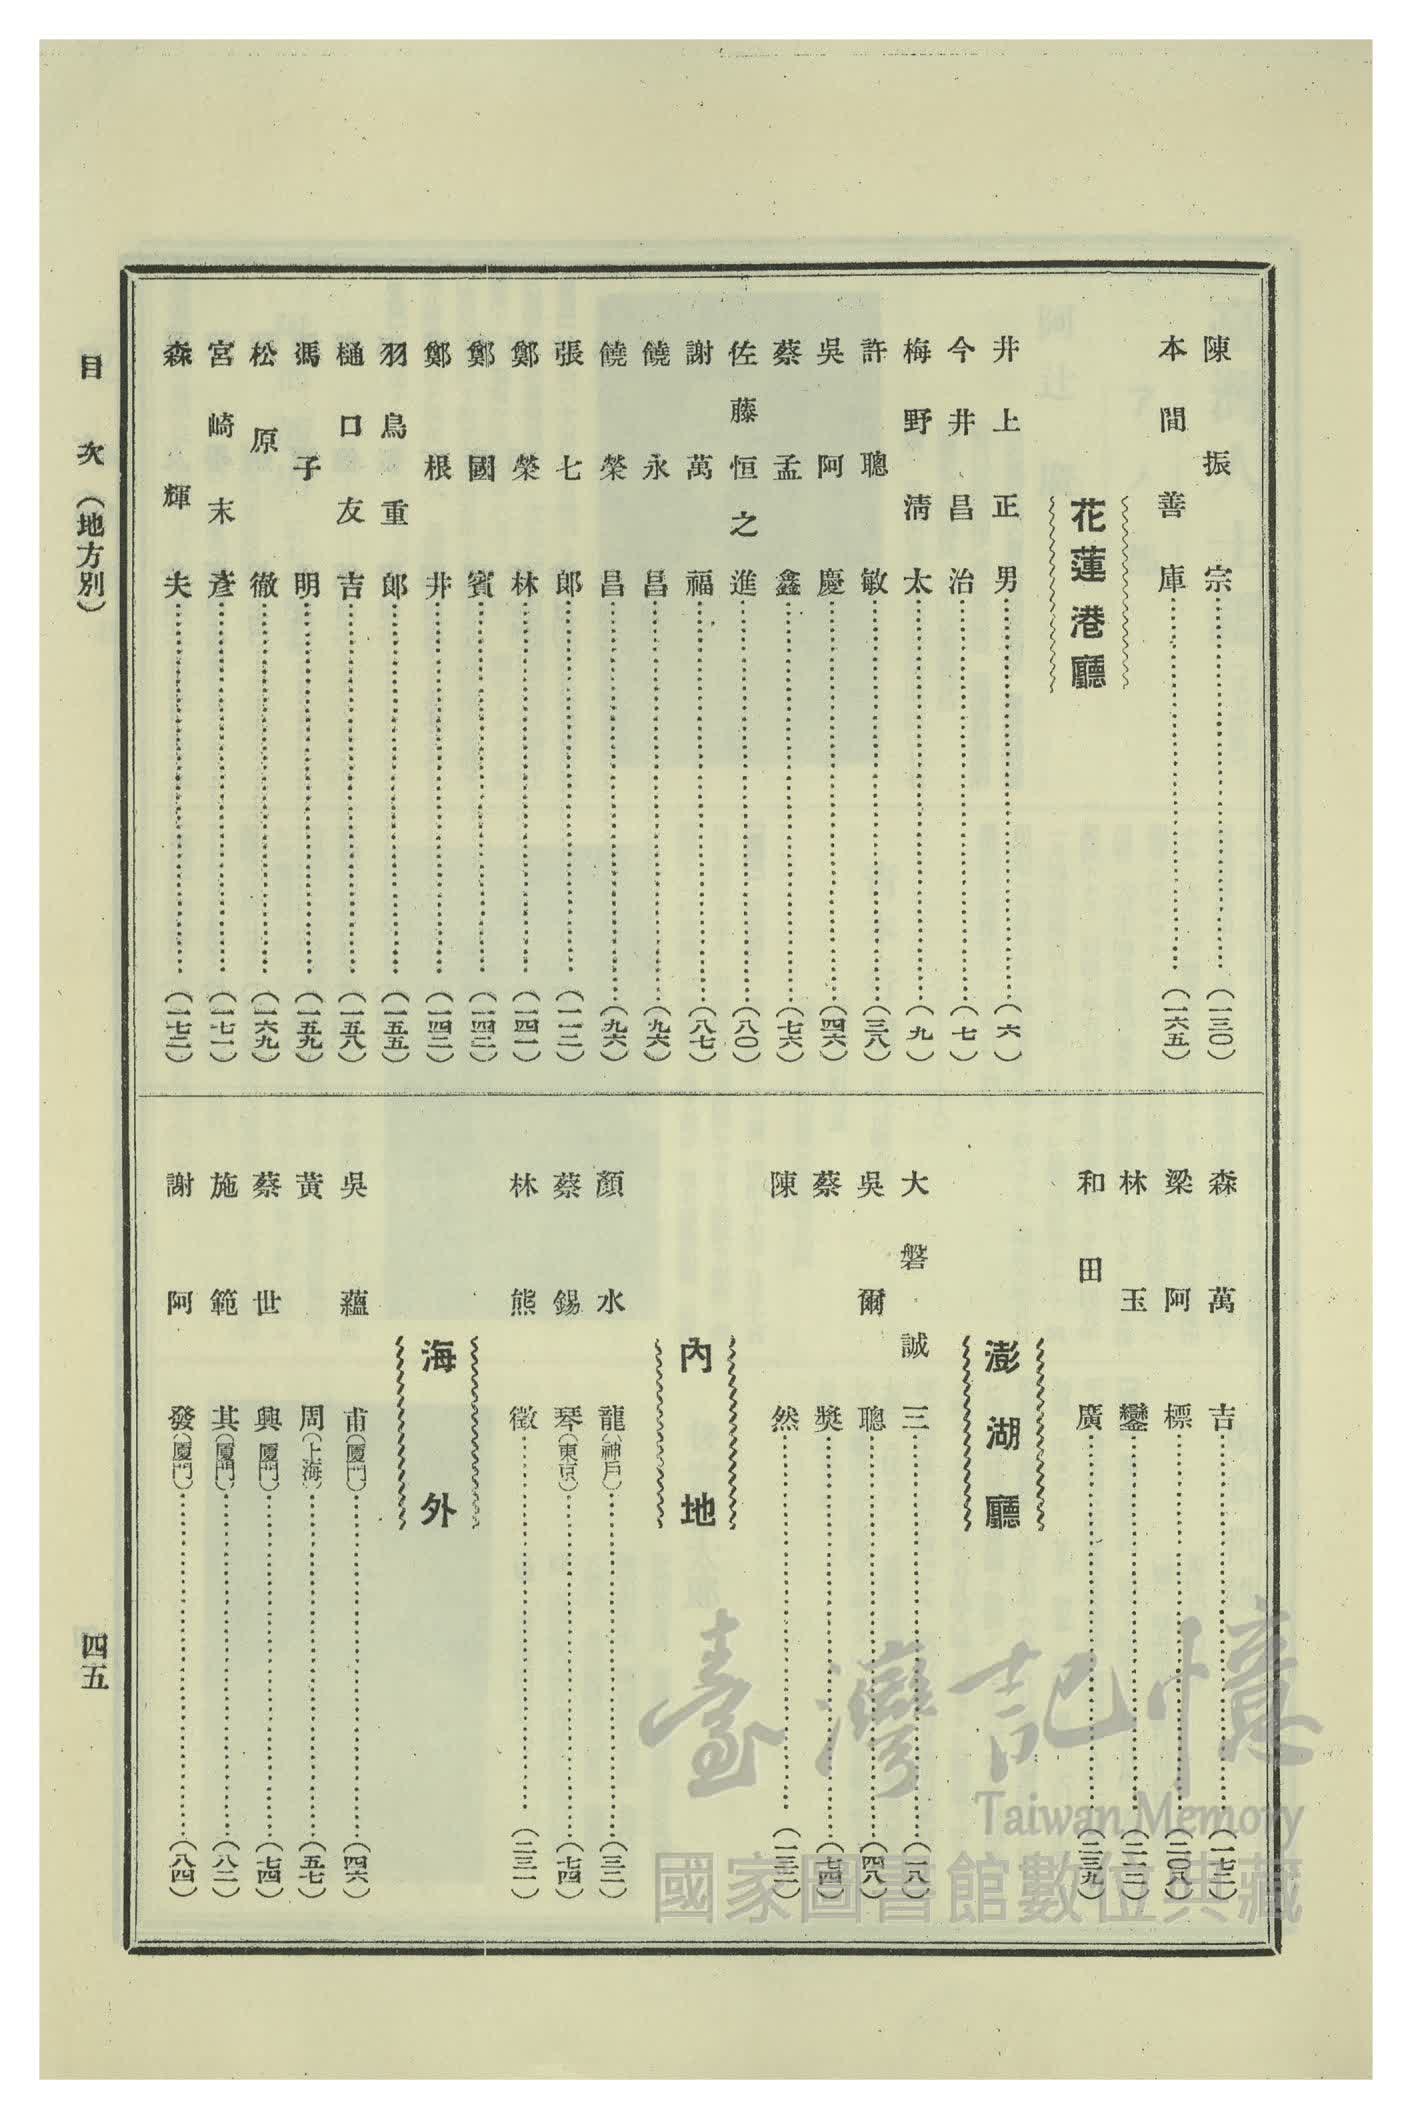 陳振宗……(一三〇)
本間善庫……(一六五)
花蓮港廳
井上正男……(六)
今井昌治……(七)
梅野淸太……(九)
許聰敏……(三八)
吳阿慶……(四六)
蔡孟鑫……(七六)
佐藤恒之進……(八〇)
謝萬福……(八七)
饒永昌……(九六)
饒榮昌……(九六)
張七郎……(一一二)
鄭榮林……(一四一)
鄭國賓……(一四二)
鄭根井……(一四二)
羽鳥重郎……(一五五)
樋口友吉……(一五八)
馮子明……(一五九)
松原徹……(一六九)
宮崎末彥……(一七一)
森輝夫……(一七二)
森萬吉……(一七二)
梁阿標……(二〇八)
林玉鑾……(二二二)
和田廣……(二三九)
澎湖廳
大磐誠三……(一八)
吳爾聰……(四八)
蔡奬……(七四)
陳然……(一三二)
內地
顏水龍(神戶)……(三二)
蔡錫琴(東京)……(七四)
林熊徵……(二三一)
海外
吳蘊甫(廈門)……(四六)
黃周(上海)……(五七)
蔡世興(廈門)……(七四)
施範其(廈門)……(八二)
謝阿發(廈門)……(八四)
目次(地方別)
四五
臺灣記憶
Taiwan Memory
國家圖書館數位典藏